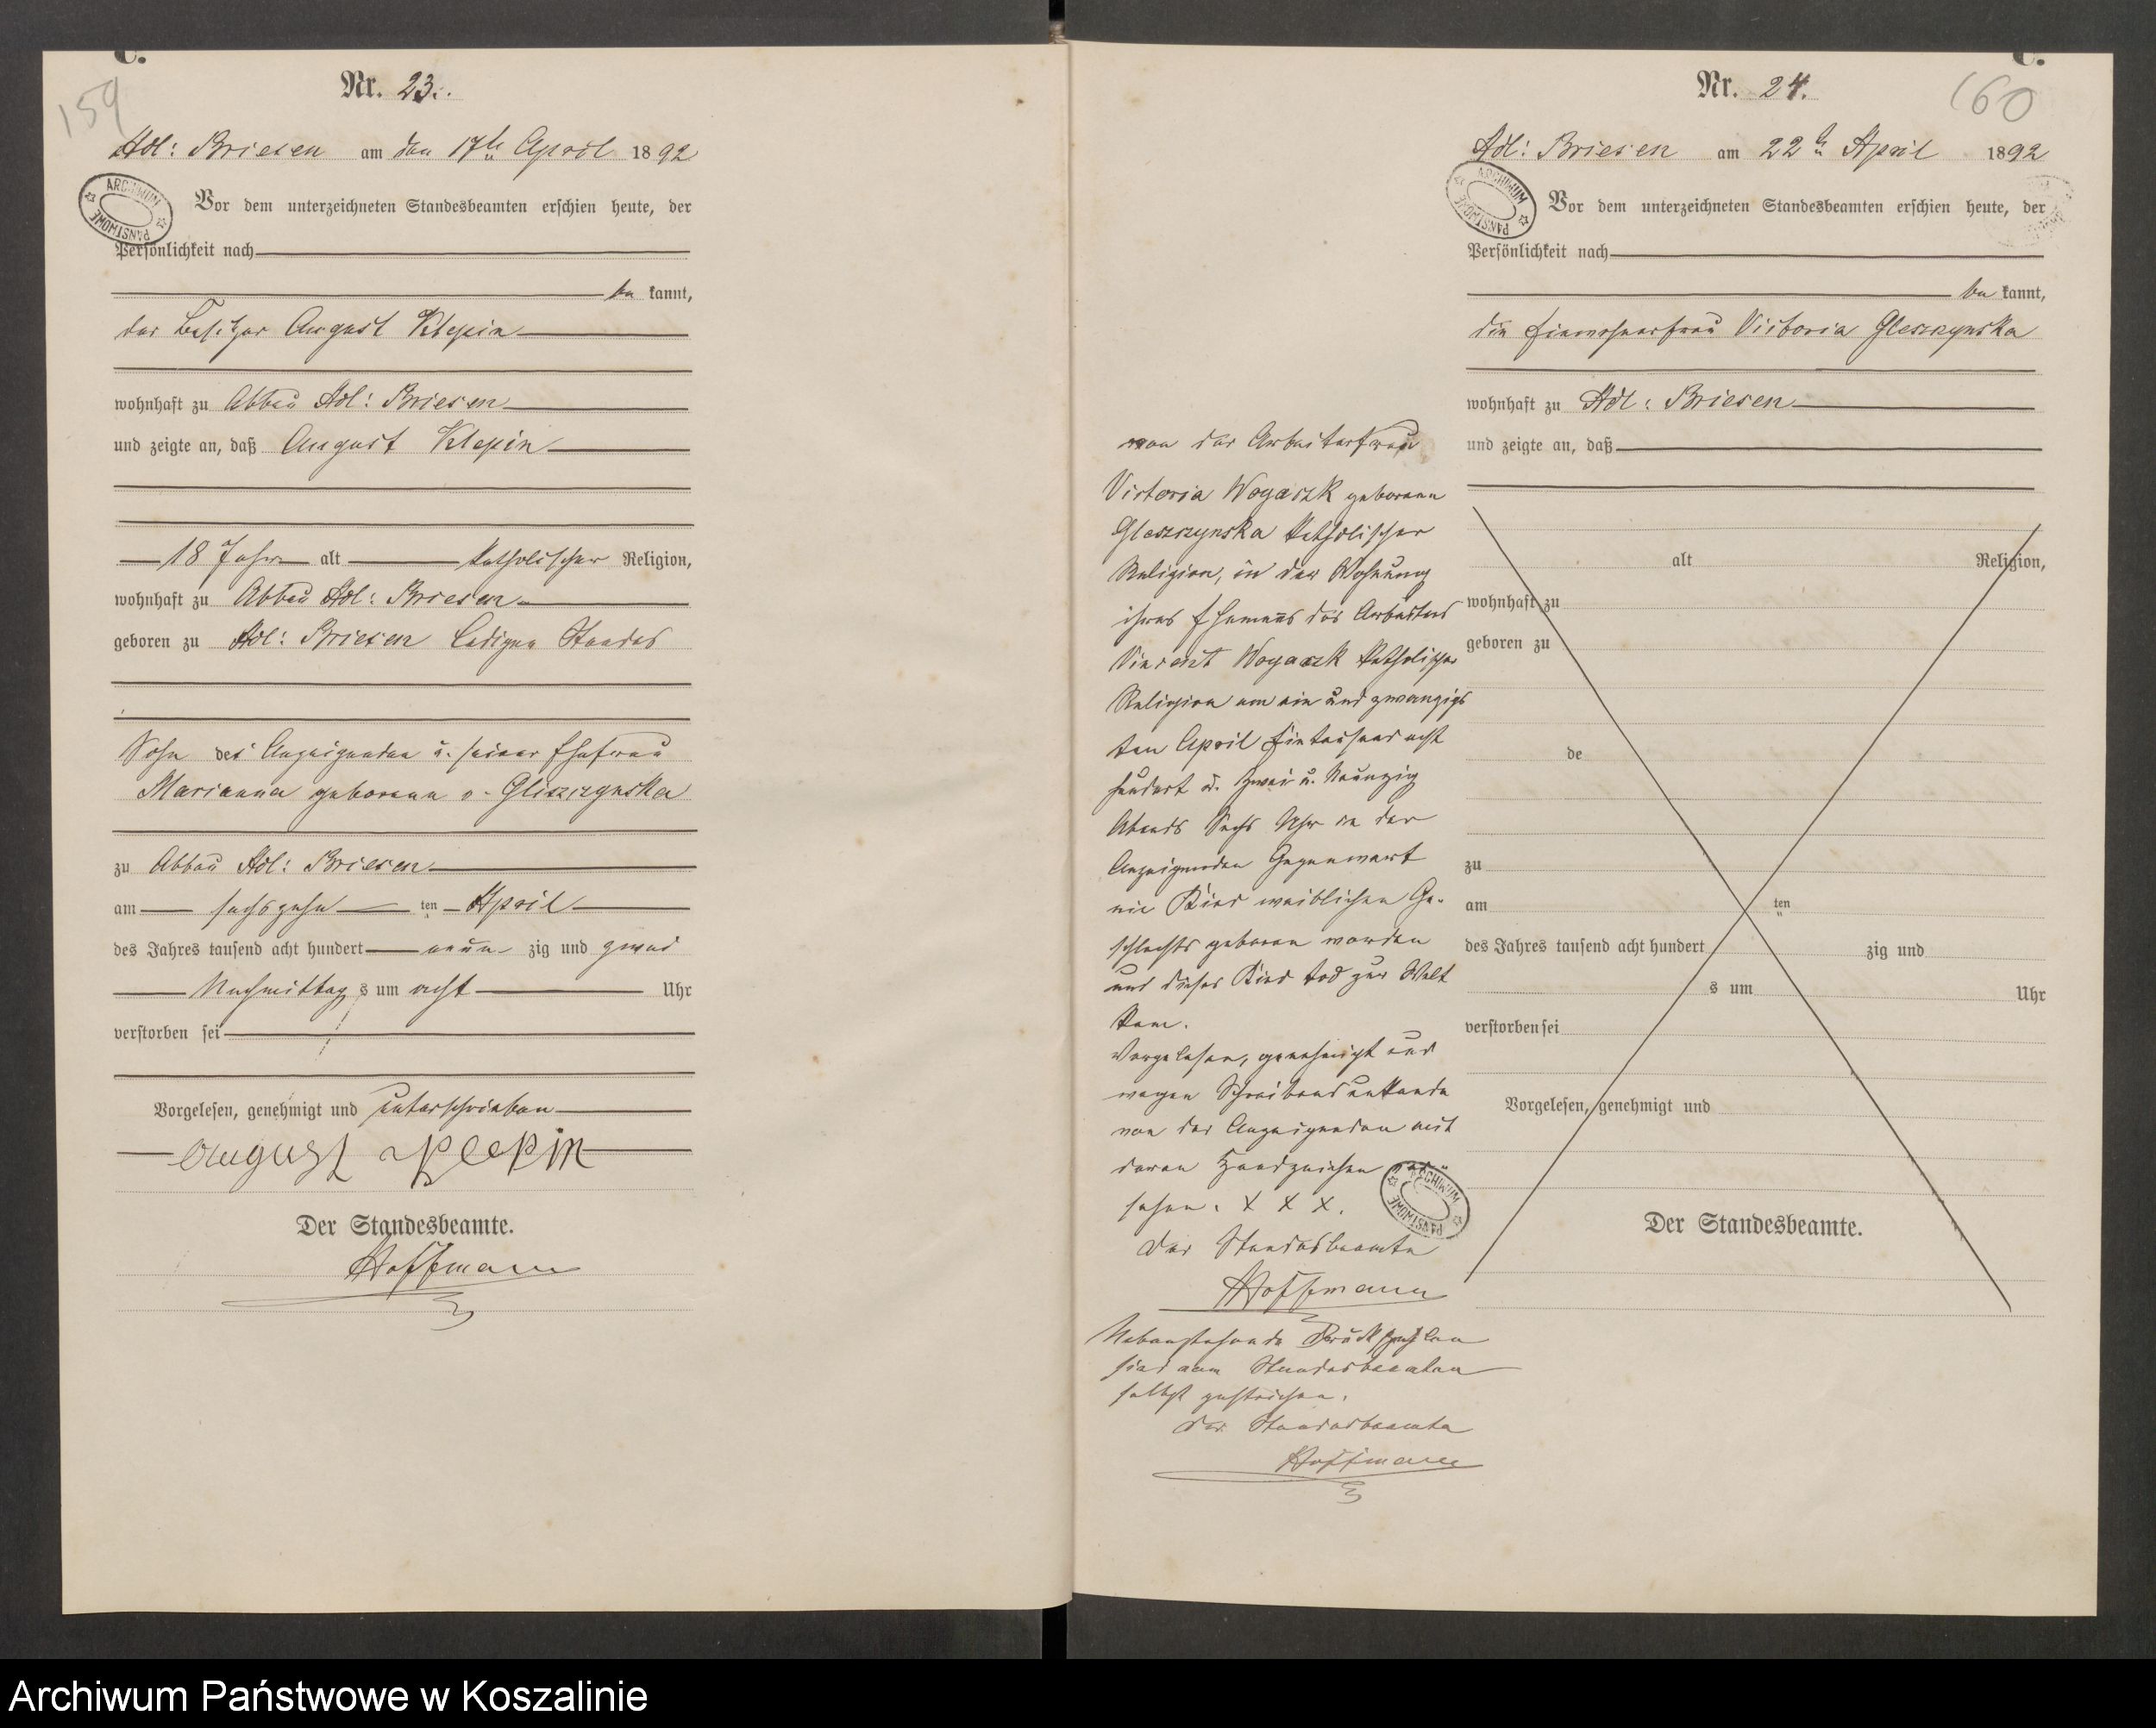 C.
159
Nr. 23.
Adl: Briesen am den 17te April 1892
ARCHIWUM PAŃSTWOWE
Vor dem unterzeichneten Standesbeamten erschien heute, der
Persönlichkeit nach
be kannt,
der Besitzer August Klepin
wohnhaft zu Abbau Adl: Briesen
und zeigte an, daß August Klepin
18 Jahre alt katholischer Religion,
wohnhaft zu Abbau Adl: Briesen
geboren zu Adl: Briesen Ledigen Standes
Sohn des Anzeigenden u. seiner Ehefrau
Marianna geborene v. Gliszczynska
zu Abbau Adl: Briesen
am sechszehn ten April
des Jahres tausend acht hundert neun zig und zwei
Nachmittag s um acht Uhr
verstorben sei
Vorgelesen, genehmigt und unterschrieben
August Klepin
Der Standesbeamte.
Hoffmann
C.
160
Nr. 24.
Adl: Briesen am 22te April 1892
ARCHIWUM PAŃSTWOWE
Vor dem unterzeichneten Standesbeamten erschien heute, der
Persönlichkeit nach
be kannt,
die Einwohnerfrau Victoria Gleszczynska
wohnhaft zu Adl: Briesen
und zeigte an, daß
von der Arbeiterfrau
Victoria Wogaczk geborene
Gleszczynska katholischer
Religion, in der Wohnung
ihres Ehemanns des Arbeiters
Vincent Wogaczk katholischer
Religion am ein und zwanzigs
ten April Eintausend acht
hundert u. zwei u. Neunzig
Abends Sechs Uhr in der
Anzeigenden Gegenwart
ein Kind weiblichen Ge-
schlechts geboren worden
und dieses Kind tod zur Welt
kam.
Vorgelesen, genehmigt und
wegen Schreibensunkunde
von der Anzeigenden mit
deren Handzeichen ver-
sehen. X X X.
Der Standesbeamte
Hoffmann
Nebenstehende Druckzeilen
sind vom Standesbeamten
selbst gestrichen.
Der Standesbeamte
Hoffmann
ARCHIWUM PAŃSTWOWE
alt Religion,
wohnhaft zu
geboren zu
de
zu
am ten
des Jahres tausend acht hundert zig und
s um Uhr
verstorben sei
Vorgelesen, genehmigt und
Der Standesbeamte.
Archiwum Państwowe w Koszalinie